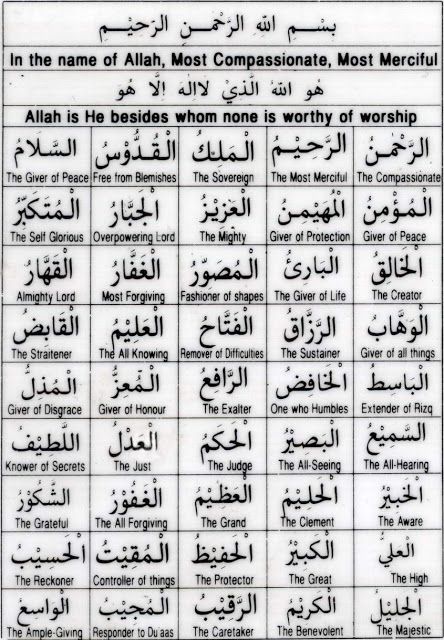 بِسْمِ اللهِ الرَّحْمٰنِ الرَّحِيْمِ
In the name of Allah, Most Compassionate, Most Merciful
هُوَ اللهُ الَّذِيْ لَاإِلٰهَ إِلَّا هُوَ
Allah is He besides whom none is worthy of worship
الرَّحْمٰنُ
The Compassionate
الرَّحِيْمُ
The Most Merciful
الْمَلِكُ
The Sovereign
الْقُدُّوْسُ
Free from Blemishes
السَّلَامُ
The Giver of Peace
الْمُؤْمِنُ
Giver of Peace
الْمُهَيْمِنُ
Giver of Protection
الْعَزِيْزُ
The Mighty
الْجَبَّارُ
Overpowering Lord
الْمُتَكَبِّرُ
The Self Glorious
الْخَالِقُ
The Creator
الْبَارِئُ
The Giver of Life
الْمُصَوِّرُ
Fashioner of shapes
الْغَفَّارُ
Most Forgiving
الْقَهَّارُ
Almighty Lord
الْوَهَّابُ
Giver of all things
الرَّزَّاقُ
The Sustainer
الْفَتَّاحُ
Remover of Difficulties
الْعَلِيْمُ
The All Knowing
الْقَابِضُ
The Straitener
الْبَاسِطُ
Extender of Rizq
الْخَافِضُ
One who Humbles
الرَّافِعُ
The Exalter
الْمُعِزُّ
Giver of Honour
الْمُذِلُّ
Giver of Disgrace
السَّمِيْعُ
The All-Hearing
الْبَصِيْرُ
The All-Seeing
الْحَكَمُ
The Judge
الْعَدْلُ
The Just
اللَّطِيْفُ
Knower of Secrets
الْخَبِيْرُ
The Aware
الْحَلِيْمُ
The Clement
الْعَظِيْمُ
The Grand
الْغَفُوْرُ
The All Forgiving
الشَّكُوْرُ
The Grateful
الْعَلِيُّ
The High
الْكَبِيْرُ
The Great
الْحَفِيْظُ
The Protector
الْمُقِيْتُ
Controller of things
الْحَسِيْبُ
The Reckoner
الْجَلِيْلُ
The Majestic
الْكَرِيْمُ
The Benevolent
الرَّقِيْبُ
The Caretaker
الْمُجِيْبُ
Responder to Du aas
الْوَاسِعُ
The Ample-Giving